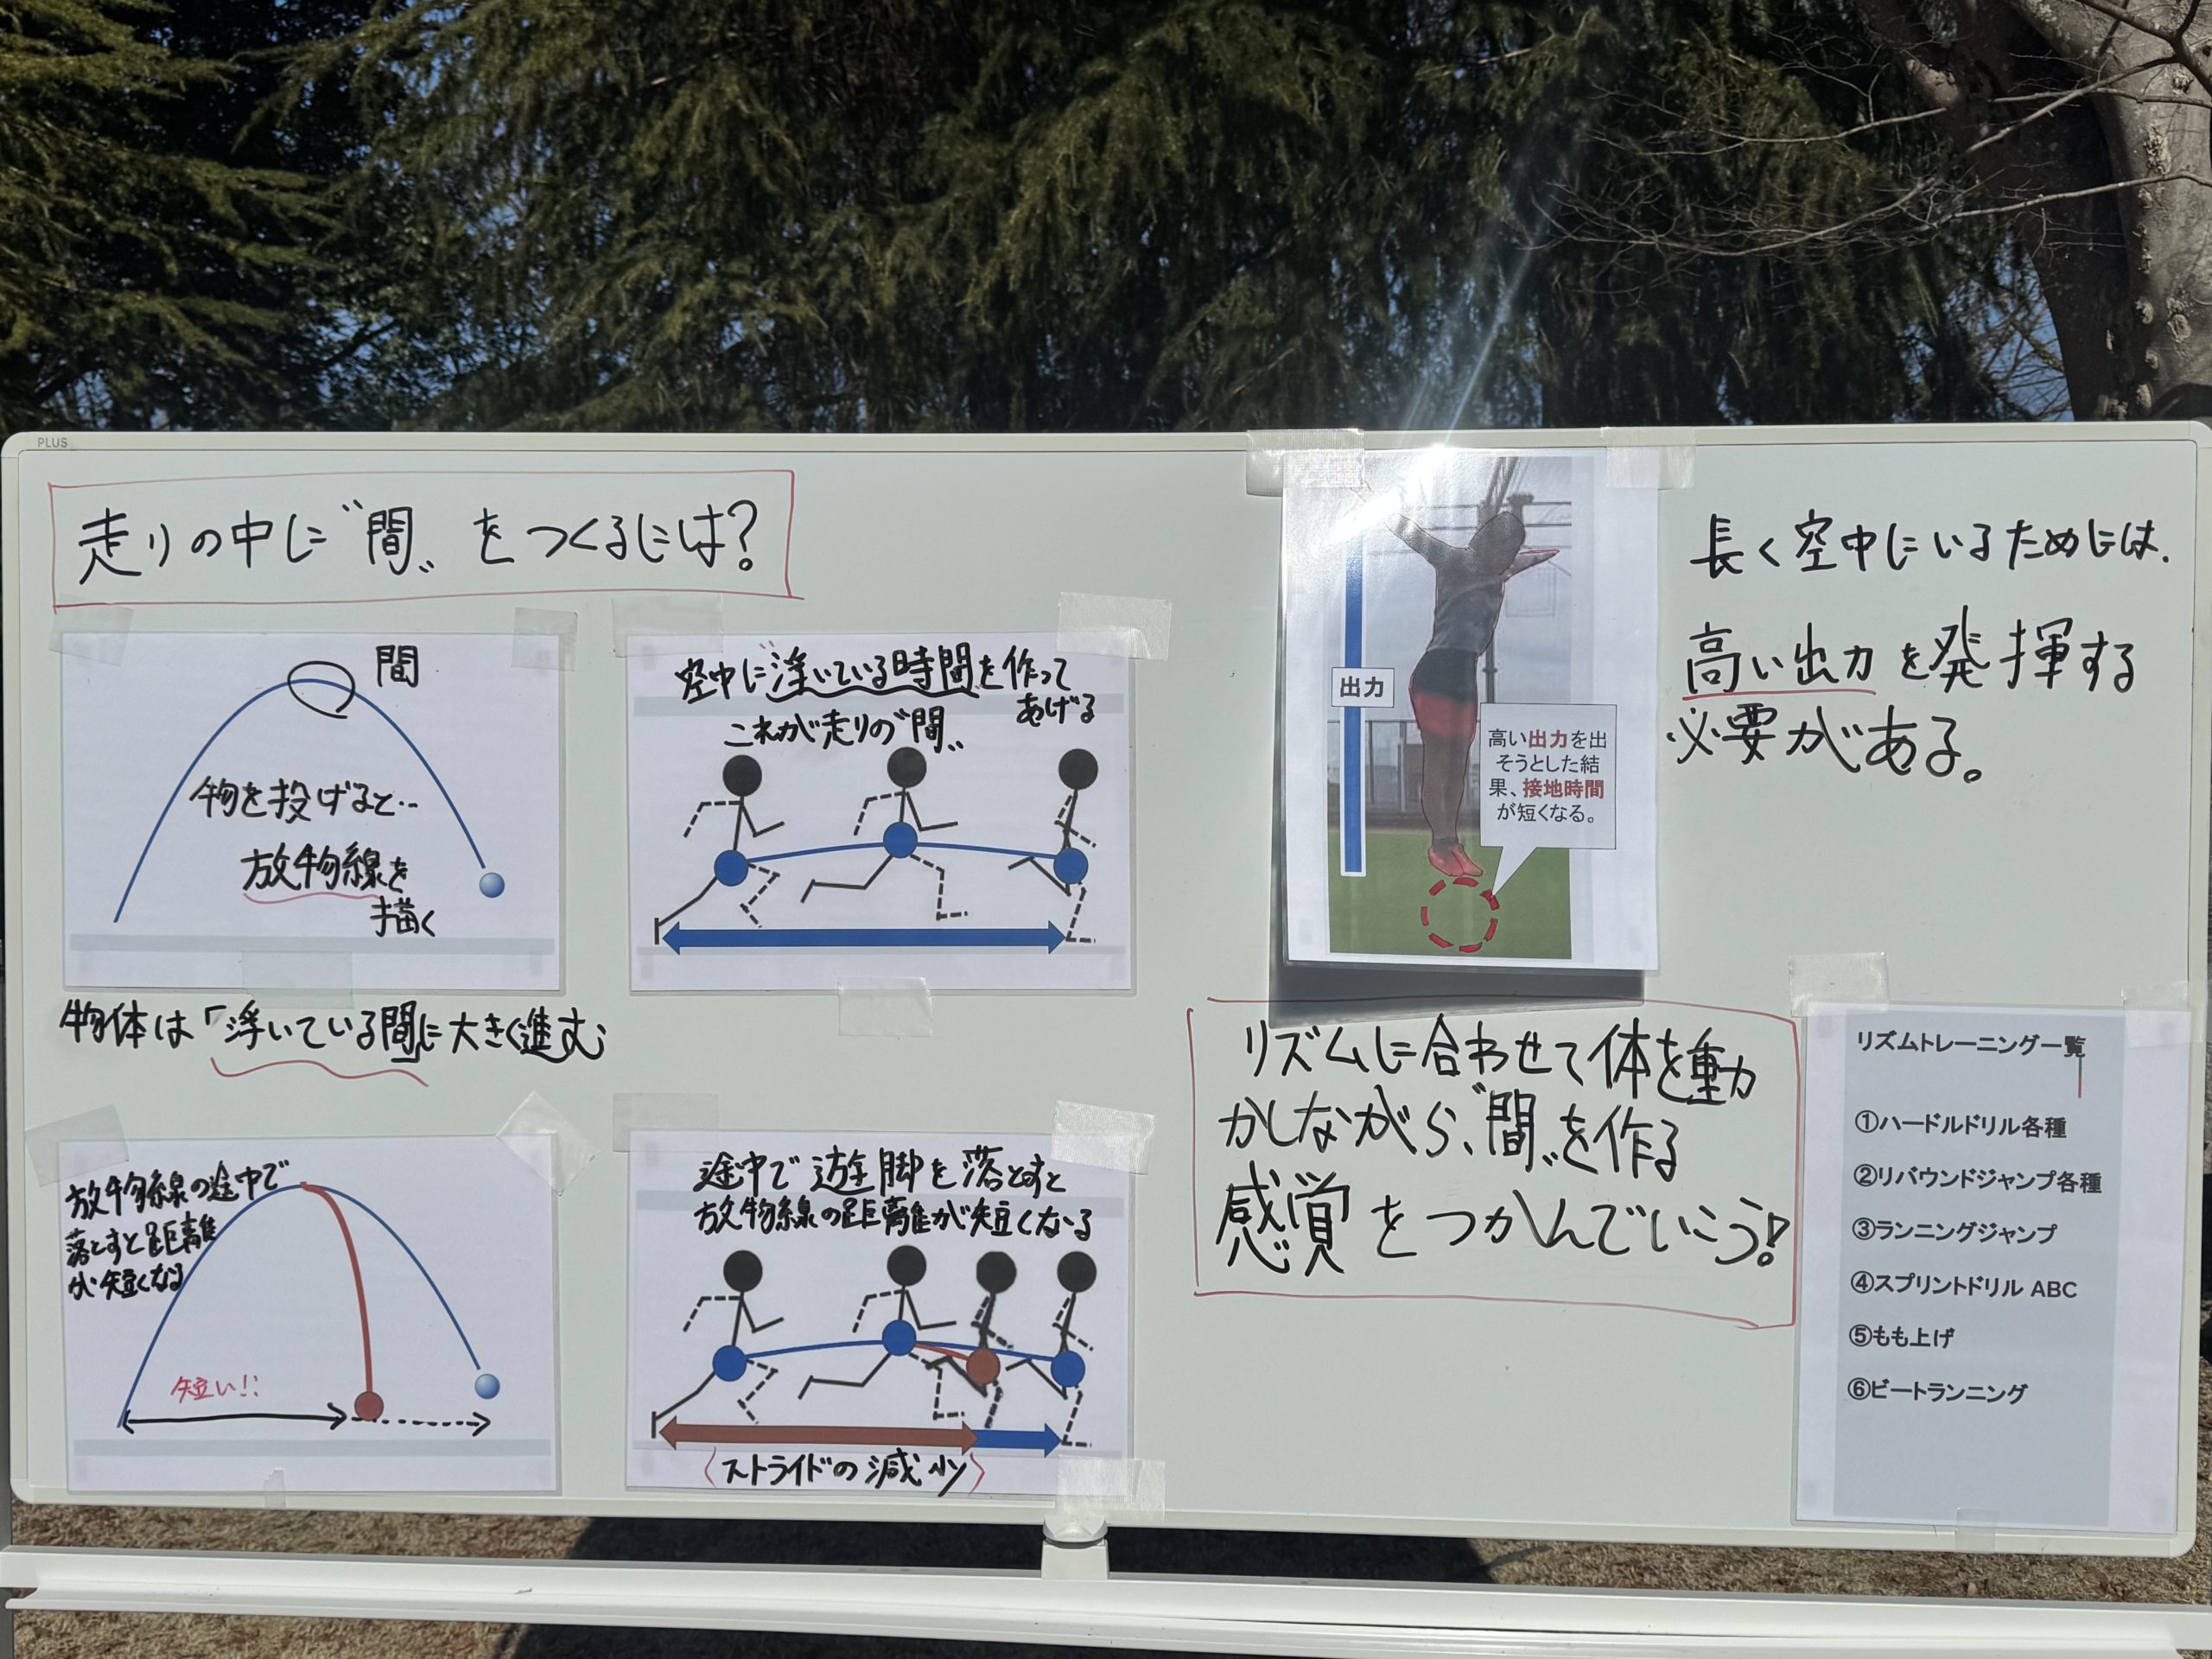 PLUS
走りの中に〝間〟をつくるには?
間
物を投げると‥
放物線を
描く
物体は「浮いている間に大きく進む
空中に浮いている時間を作って
あげる
これが走りの〝間〟
放物線の途中で
落とすと距離
が短くなる
短い!!
途中で遊脚を落とすと
放物線の距離が短くなる
〈ストライドの減少〉
出力
高い出力を出
そうとした結
果、接地時間
が短くなる。
長く空中にいるためには、
高い出力を発揮する
必要がある。
リズムに合わせて体を動
かしながら、〝間〟を作る
感覚をつかんでいこう!
リズムトレーニング一覧
①ハードルドリル各種
②リバウンドジャンプ各種
③ランニングジャンプ
④スプリントドリル ABC
⑤もも上げ
⑥ビートランニング